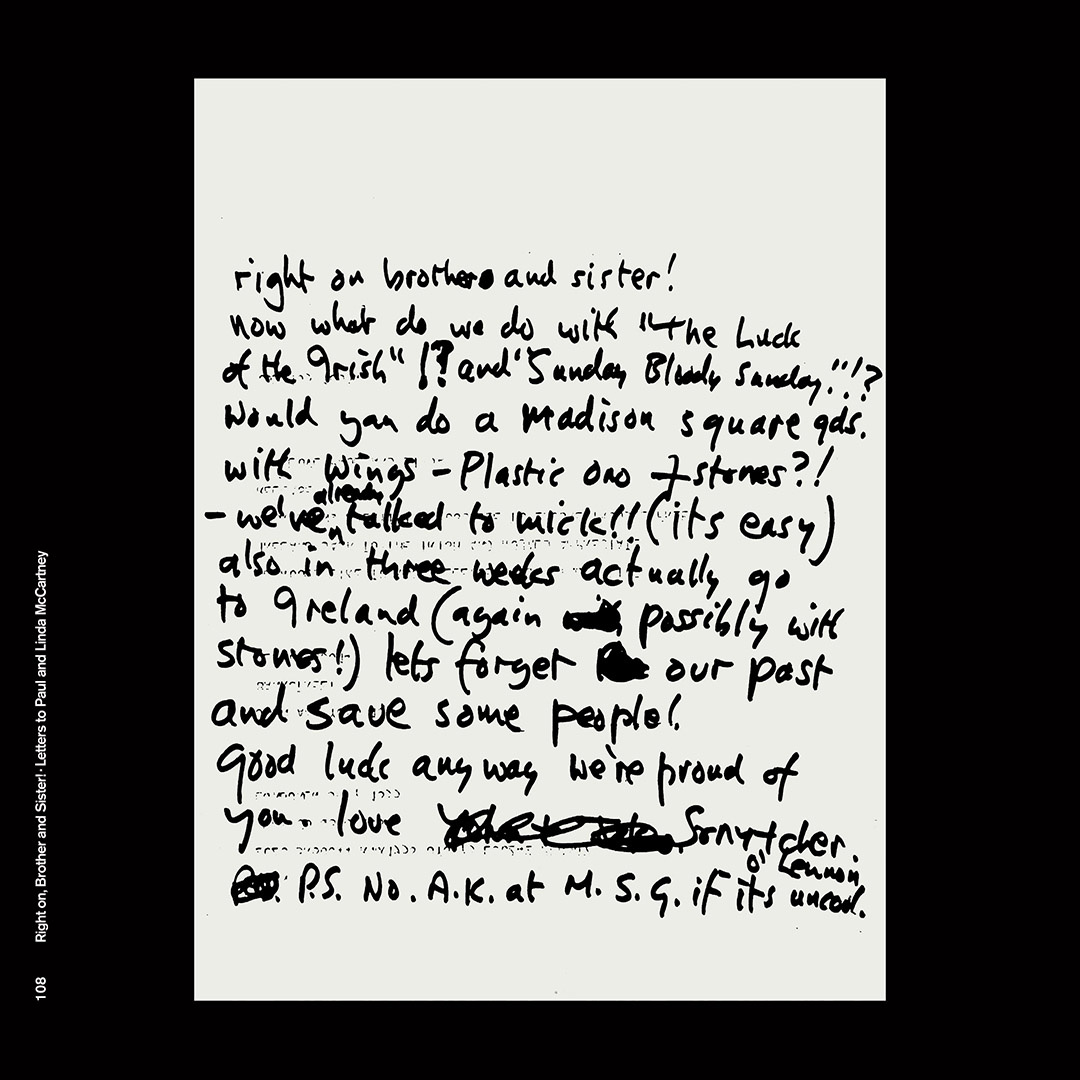 right on brothers and sister!
now what do we do with "the Luck
of the Irish" !? and "Sunday Bloody Sunday."!!?
would you do a Madison square gds.
with Wings – Plastic ono + stones?!
– we've already talked to mick!! (its easy)
also in three weeks actually go
to Ireland (again possibly with
stones!) lets forget our past
and save some people!
Good luck anyway we're proud of
you love Sonny+cher.
o' Lennon
P.S. No. A.K. at M.S.G. if its uncool.
Right on, Brother and Sister! · Letters to Paul and Linda McCartney
108